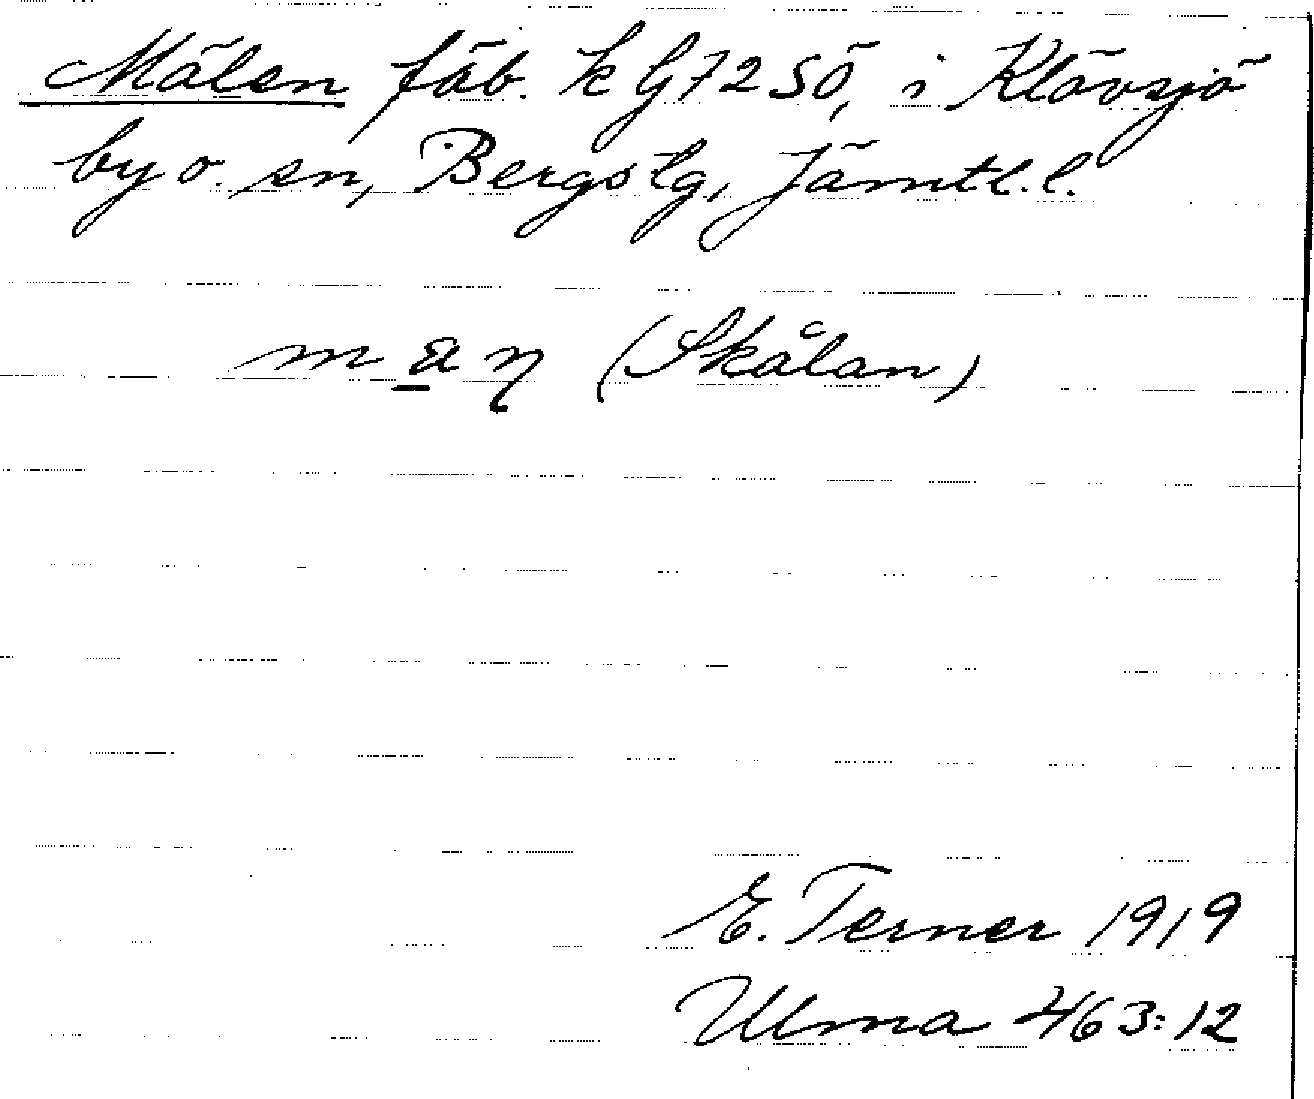 Mälen fäb. k G7250, i Klövsjö
by o. sn, Bergs tg, Jämtl. l.
m a̲ ŋ (Skålan)
E. Terner 1919
Ulma 463:12